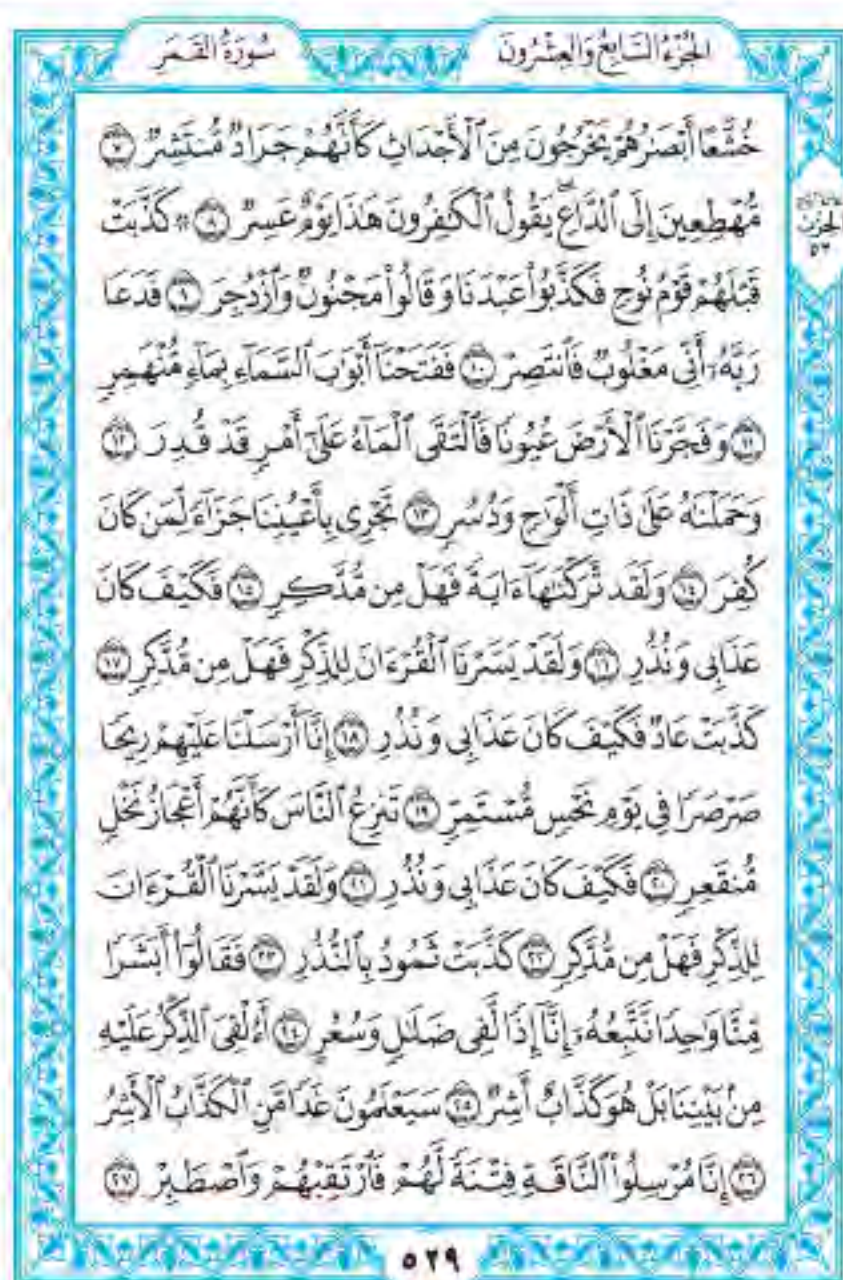 الجُزْءُ السَّابِعُ وَالعِشْرُونَ
سُورَةُ القَمَرِ
خُشَّعًا أَبْصَٰرُهُمْ يَخْرُجُونَ مِنَ ٱلْأَجْدَاثِ كَأَنَّهُمْ جَرَادٌ مُّنتَشِرٌ ٧
مُّهْطِعِينَ إِلَى ٱلدَّاعِ ۖ يَقُولُ ٱلْكَٰفِرُونَ هَٰذَا يَوْمٌ عَسِرٌ ٨ ۞ كَذَّبَتْ
الحِزْب
٥٣
قَبْلَهُمْ قَوْمُ نُوحٍ فَكَذَّبُوا۟ عَبْدَنَا وَقَالُوا۟ مَجْنُونٌ وَٱزْدُجِرَ ٩ فَدَعَا
رَبَّهُۥٓ أَنِّى مَغْلُوبٌ فَٱنتَصِرْ ١٠ فَفَتَحْنَآ أَبْوَٰبَ ٱلسَّمَآءِ بِمَآءٍ مُّنْهَمِرٍ
١١ وَفَجَّرْنَا ٱلْأَرْضَ عُيُونًا فَٱلْتَقَى ٱلْمَآءُ عَلَىٰٓ أَمْرٍ قَدْ قُدِرَ ١٢
وَحَمَلْنَٰهُ عَلَىٰ ذَاتِ أَلْوَٰحٍ وَدُسُرٍ ١٣ تَجْرِى بِأَعْيُنِنَا جَزَآءً لِّمَن كَانَ
كُفِرَ ١٤ وَلَقَد تَّرَكْنَٰهَآ ءَايَةً فَهَلْ مِن مُّدَّكِرٍ ١٥ فَكَيْفَ كَانَ
عَذَابِى وَنُذُرِ ١٦ وَلَقَدْ يَسَّرْنَا ٱلْقُرْءَانَ لِلذِّكْرِ فَهَلْ مِن مُّدَّكِرٍ ١٧
كَذَّبَتْ عَادٌ فَكَيْفَ كَانَ عَذَابِى وَنُذُرِ ١٨ إِنَّآ أَرْسَلْنَا عَلَيْهِمْ رِيحًا
صَرْصَرًا فِى يَوْمِ نَحْسٍ مُّسْتَمِرٍّ ١٩ تَنزِعُ ٱلنَّاسَ كَأَنَّهُمْ أَعْجَازُ نَخْلٍ
مُّنقَعِرٍ ٢٠ فَكَيْفَ كَانَ عَذَابِى وَنُذُرِ ٢١ وَلَقَدْ يَسَّرْنَا ٱلْقُرْءَانَ
لِلذِّكْرِ فَهَلْ مِن مُّدَّكِرٍ ٢٢ كَذَّبَتْ ثَمُودُ بِٱلنُّذُرِ ٢٣ فَقَالُوٓا۟ أَبَشَرًا
مِّنَّا وَٰحِدًا نَّتَّبِعُهُۥٓ إِنَّآ إِذًا لَّفِى ضَلَٰلٍ وَسُعُرٍ ٢٤ أَءُلْقِىَ ٱلذِّكْرُ عَلَيْهِ
مِنۢ بَيْنِنَا بَلْ هُوَ كَذَّابٌ أَشِرٌ ٢٥ سَيَعْلَمُونَ غَدًا مَّنِ ٱلْكَذَّابُ ٱلْأَشِرُ
٢٦ إِنَّا مُرْسِلُوا۟ ٱلنَّاقَةِ فِتْنَةً لَّهُمْ فَٱرْتَقِبْهُمْ وَٱصْطَبِرْ ٢٧
٥٢٩